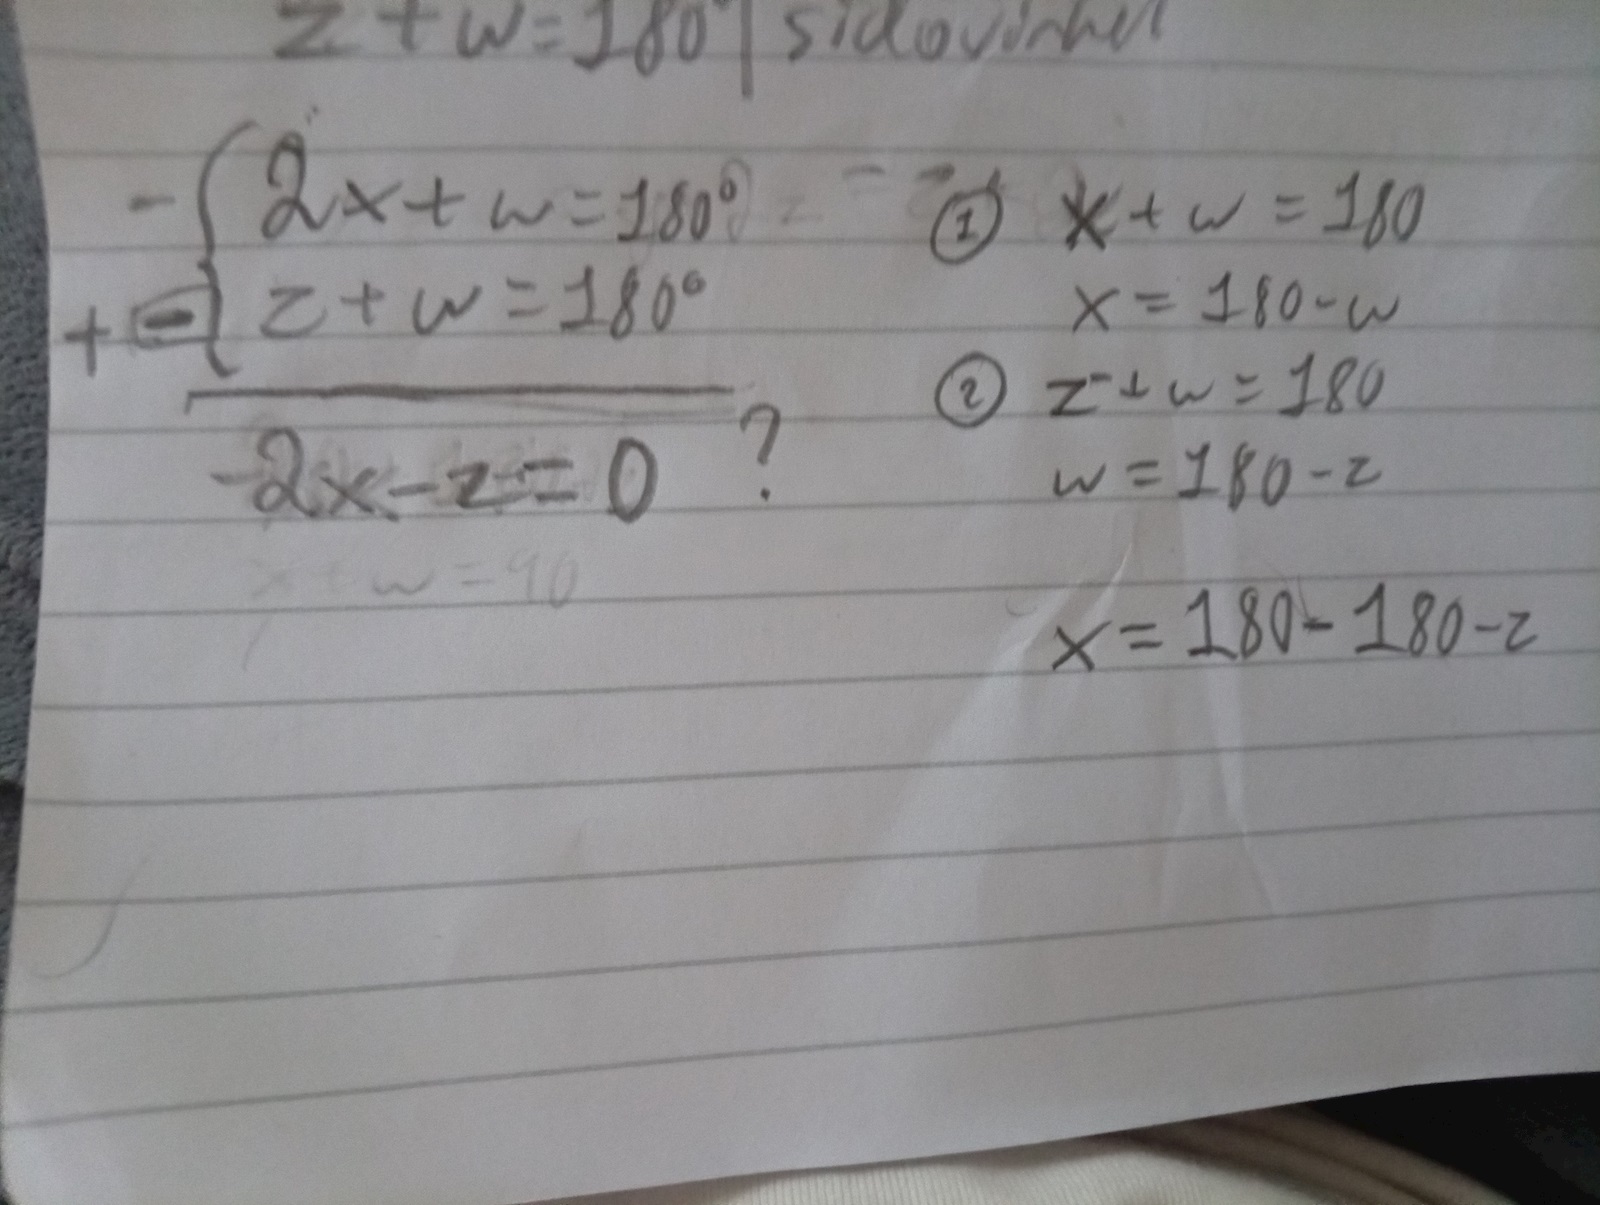 z + w = 180° | sidovinkel
- { 2x + w = 180°
+ - { z + w = 180°
-2x - z = 0 ?
x + w = 90
① x + w = 180
x = 180 - w
② z + w = 180
w = 180 - z
x = 180 - 180 - z